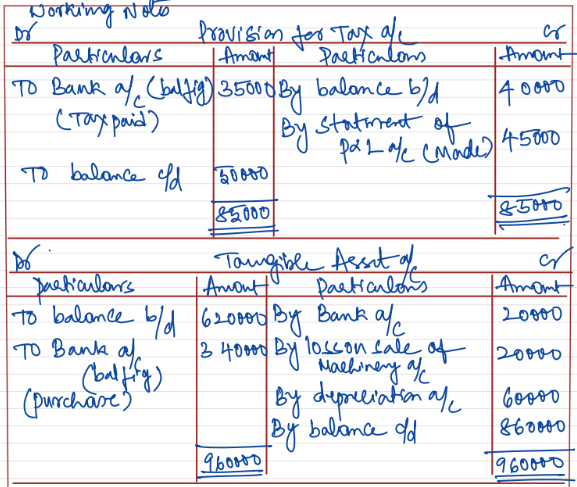 Working Note
Dr Provision for Tax a/c Cr
Particulars Amount Particulars Amount
To Bank a/c (bal fig) 35000 By balance b/d 40000
(Tax paid) By Statment of
P&L a/c (Made) 45000
To balance c/d 50000
85000 85000
Dr Tangible Asset a/c Cr
Particulars Amount Particulars Amount
To balance b/d 620000 By Bank a/c 20000
To Bank a/c 340000 By loss on sale of 20000
(bal fig) Machinery a/c
(purchase) By depreciation a/c 60000
By balance c/d 860000
960000 960000